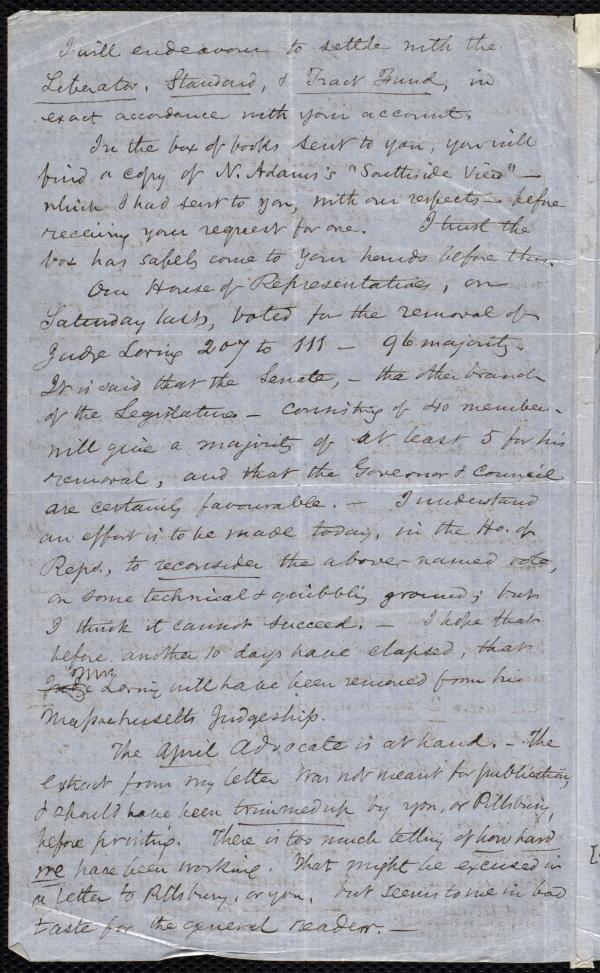 I will endeavour to settle with the
Liberator, Standard, & Tract Fund, in
exact accordance with your account.
In the box of books sent to you, you will
find a copy of N. Adams's "Southside View" —
which I had sent to you, with our respects — before
receiving your request for one. I trust the
box has safely come to your hands before this.
Our House of Representatives, on
Saturday last, voted for the removal of
Judge Loring 207 to 111 — 96 majority.
It is said that the Senate, — the other branch
of the Legislature — consisting of 40 members —
will give a majority of at least 5 for his
removal, and that the Governor & Council
are certainly favourable. — I understand
an effort is to be made today, in the Ho. of
Reps., to reconsider the above-named vote,
on some technical & quibbling ground; but
I think it cannot succeed. — I hope that
before another 10 days have elapsed, that
Loring will have been removed from his
Massachusetts Judgeship.
The April Advocate is at hand. — The
extract from my letter was not meant for publication,
& should have been trimmed up by you, or Pillsbury,
before printing. There is too much telling of how hard
we have been working. That might be excused in
a letter to Pillsbury, or you, but seems to me in bad
taste for the general reader. —